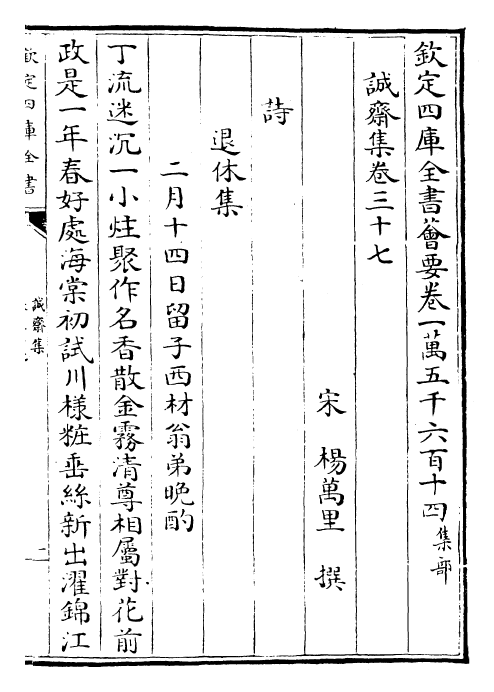 欽定四庫全書薈要卷一萬五千六百十四集部
誠齋集卷三十七
宋 楊萬里 撰
詩
退休集
二月十四日留子西材翁弟晚酌
丁流迷沉一小炷聚作名香散金霧清尊相屬對花前
政是一年春好處海棠初試川樣粧垂絲新出濯錦江
欽定四庫全書
誠齋集